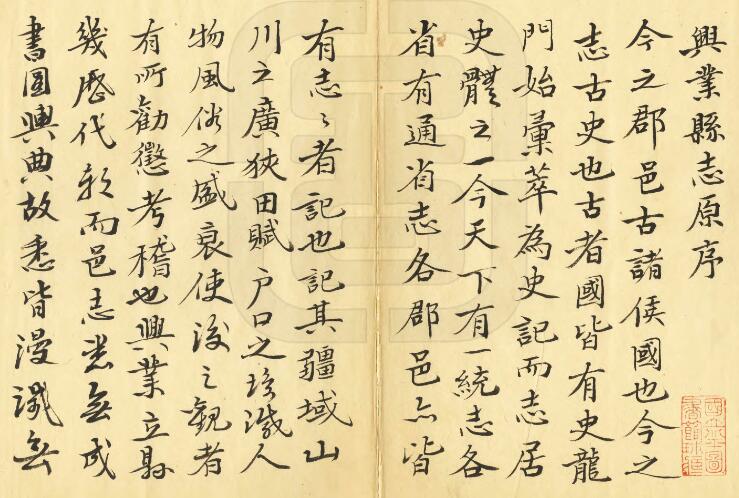 興業縣志原序
今之郡邑古諸侯國也今之
志古史也古者國皆有史龍
門始彙萃為史記而志居
史體之一今天下有一統志各
省有通省志各郡邑亦皆
有志〻者記也記其疆域山
川之廣狹田賦户口之殷濈人
物風俗之盛衰使後之觀者
有所勸懲考稽也興業立縣
幾歷代矣而邑志茫無成
書圖輿典故悉皆漫識無